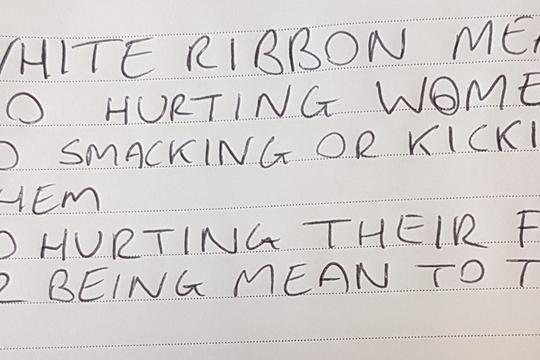 WHITE RIBBON MEA
O HURTING WOME
O SMACKING OR KICKI
HEM
O HURTING THEIR F
R BEING MEAN TO T